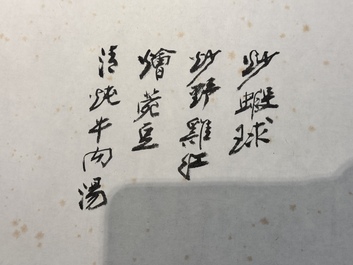 炒蝦球
炒野雞紅
燴菀豆
清炖牛肉湯